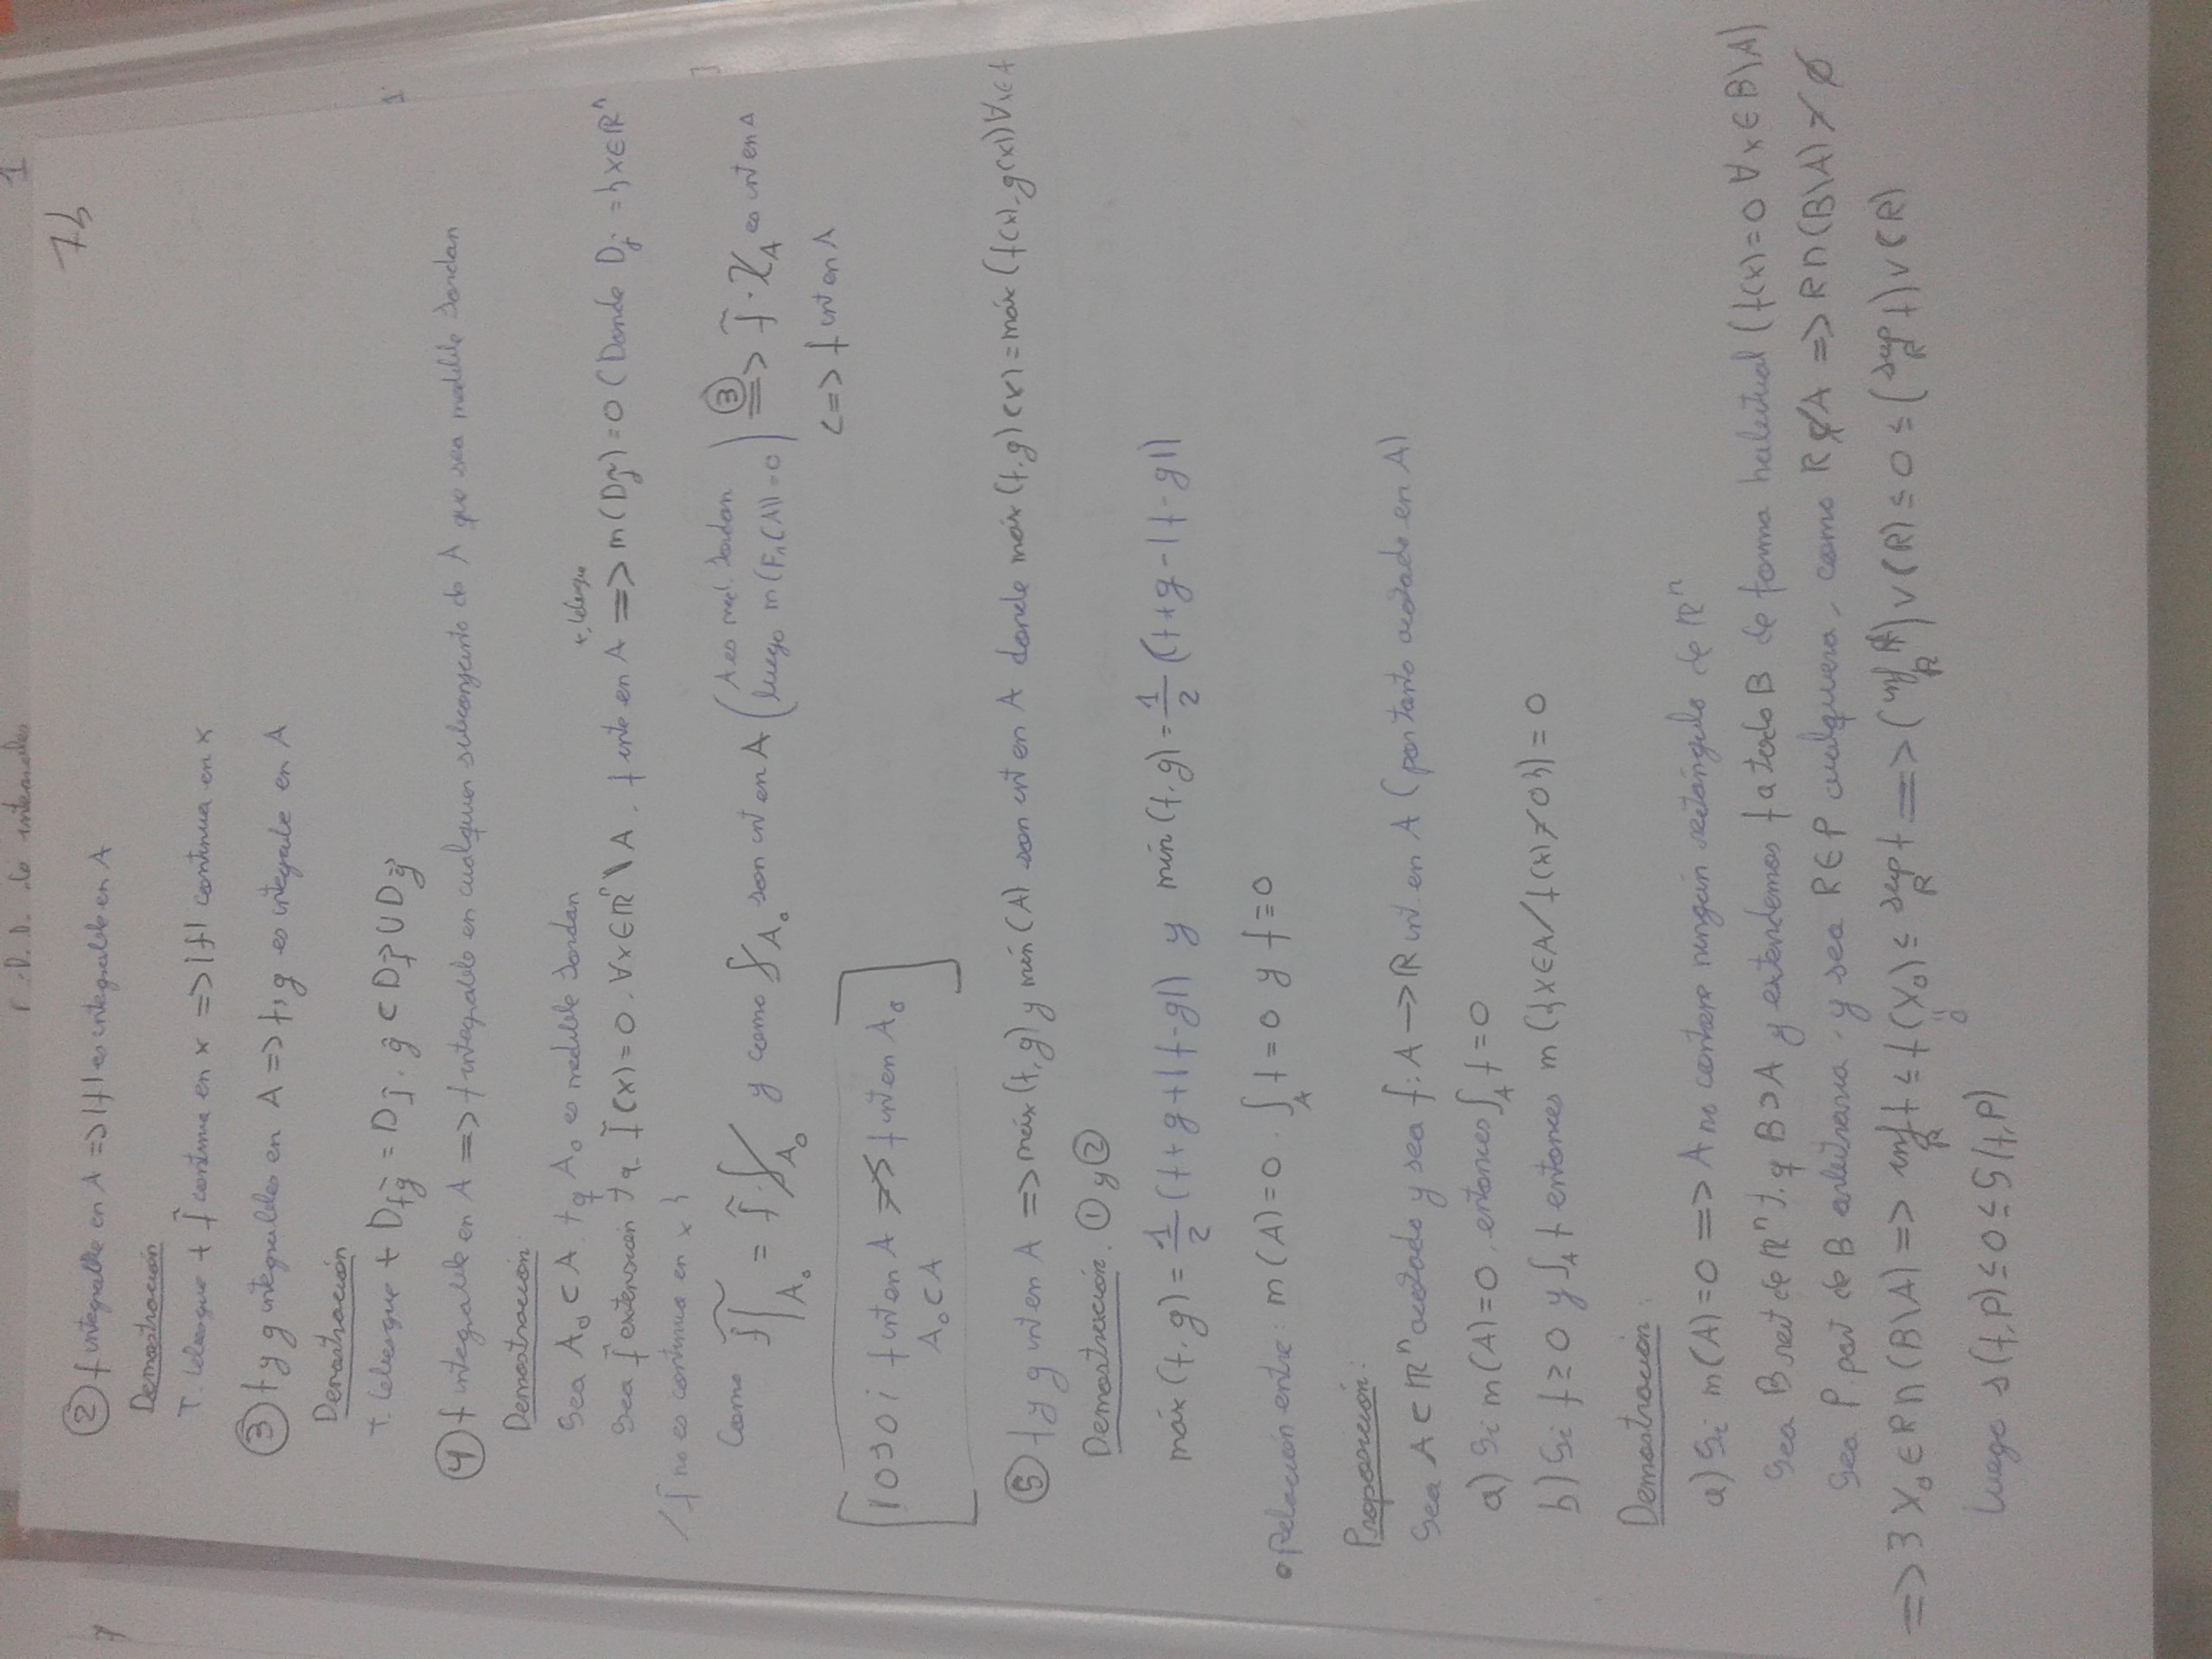 7b
② f integrable en A => |f| es integrable en A
Demostración
T. lebesgue + f̃ continua en x => |f| continua en x
③ f y g integrables en A => f·g es integrable en A
Demostración
T. lebesgue + D_f̃g̃ = D_f̃·g̃ ⊂ D_f̃ ∪ D_g̃
④ f integrable en A => f integrable en cualquier subconjunto de A que sea medible Jordan
Demostración:
Sea A₀ ⊂ A tq A₀ es medible Jordan
Sea f̃ extensión tq f̃(x)=0, ∀x∈ℝⁿ\A. f inte en A =>^{t. lebesgue} m(D_f̃)=0 (Donde D_f̃ = {x∈ℝⁿ
/ f̃ no es continua en x}
Como f̃|_A₀ = f̃· _A₀ y como _A₀ son int en A (A es med. Jordan luego m(Fr(A))=0) =>^③ f̃·χ_A es int en A
<=> f int en A
[¡OJO! f int en A f int en A₀]
A₀ ⊂ A
⑤ f y g int en A => máx(f,g) y mín(A) son int en A donde máx(f,g)(x) = máx(f(x), g(x)) ∀x∈A
Demostración: ① y ②
máx(f,g) = 1/2 (f+g+|f-g|) y mín(f,g) = 1/2 (f+g-|f-g|)
• Relación entre: m(A)=0, ∫_A f=0 y f=0
Proposición:
Sea A ⊂ ℝⁿ acotado y sea f: A → ℝ int. en A (por tanto acotada en A)
a) Si m(A)=0, entonces ∫_A f=0
b) Si f ≥ 0 y ∫_A f entonces m({x∈A / f(x)≠0})=0
Demostración:
a) Si m(A)=0 => A no contiene ningún rectángulo de ℝⁿ
Sea B rect de ℝⁿ t.q B⊃A y extendemos f a todo B de forma habitual (f(x)=0 ∀x∈B\A)
Sea P part de B arbitraria. y sea R∈P cualquiera, como R⊄A => R∩(B\A)≠∅
=> ∃ x₀∈R∩(B\A) => inf_R f ≤ f(x₀) ≤ sup_R f => (inf_R f) v(R) ≤ 0 ≤ (sup_R f) v(R)
0
luego s(f,P) ≤ 0 ≤ S(f,P)